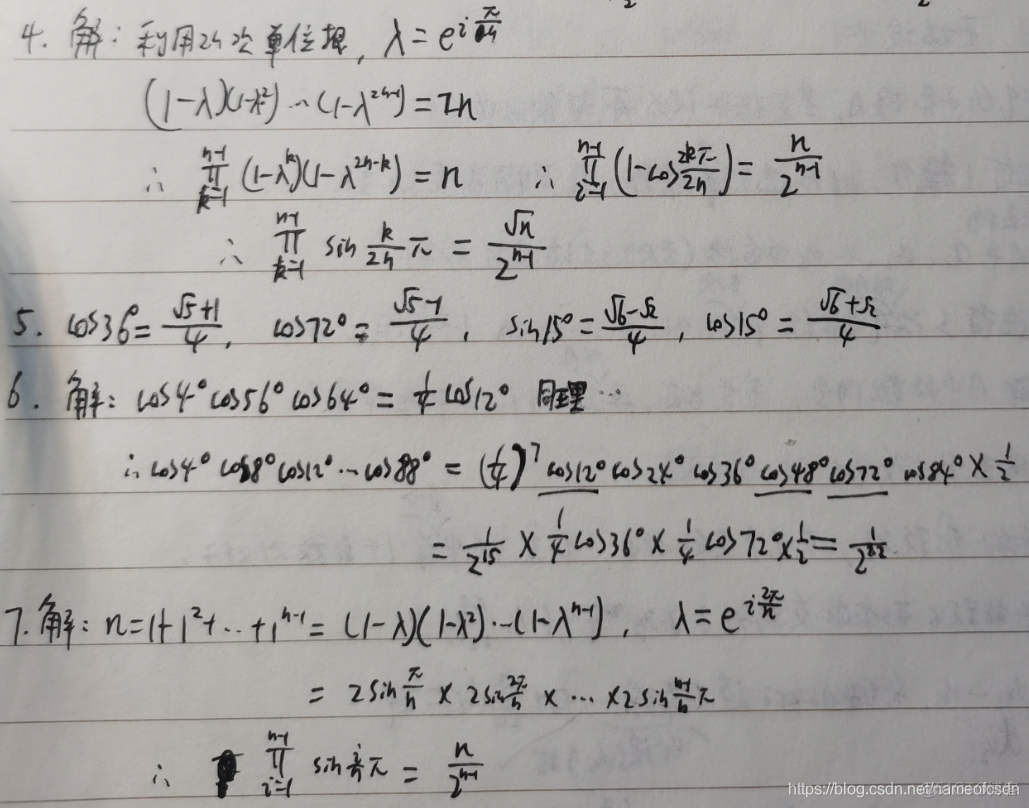 4. 解: 利用2n次单位根, λ = e^{i π/n}
(1-λ)(1-λ²)…(1-λ^{2n-1}) = 2n
∴ ∏_{k=1}^{n-1} (1-λ^k)(1-λ^{2n-k}) = n ∴ ∏_{i=1}^{n-1} (1-cos 2kπ/2n) = n/2^{n-1}
∴ ∏_{k=1}^{n-1} sin k/2n π = √n/2^{n-1}
5. cos36° = (√5+1)/4, cos72° = (√5-1)/4, sin15° = (√6-√2)/4, cos15° = (√6+√2)/4
6. 解: cos4° cos56° cos64° = 1/4 cos12° 同理…
∴ cos4° cos8° cos12° … cos88° = (1/4)^7 cos12° cos24° cos36° cos48° cos72° cos84° × 1/2
= 1/2^{15} × 1/4 cos36° × 1/4 cos72° × 1/2 = 1/2^{22}
7. 解: n = 1+1²+…+1^{n-1} = (1-λ)(1-λ²)…(1-λ^{n-1}), λ = e^{i 2π/n}
= 2sin π/n × 2sin 2π/n × … × 2sin (n-1)/n π
∴ ∏_{i=1}^{n-1} sin i/n π = n/2^{n-1}
https://blog.csdn.net/nameofcsdn